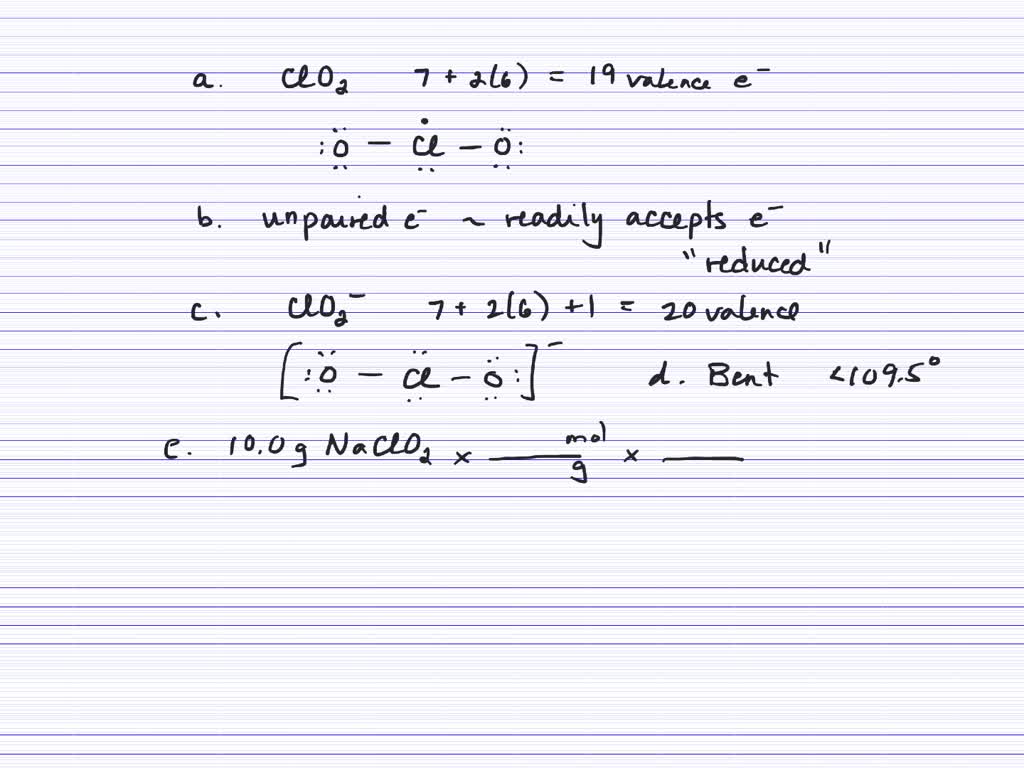 a. ClO₂ 7 + 2(6) = 19 valence e⁻
:Ö – Cl – Ö:
b. unpaired e⁻ ~ readily accepts e⁻
"reduced"
c. ClO₂⁻ 7 + 2(6) + 1 = 20 valence
[:Ö – Cl – Ö:]⁻ d. Bent <109.5°
e. 10.0 g NaClO₂ × ____ mol/g × ____